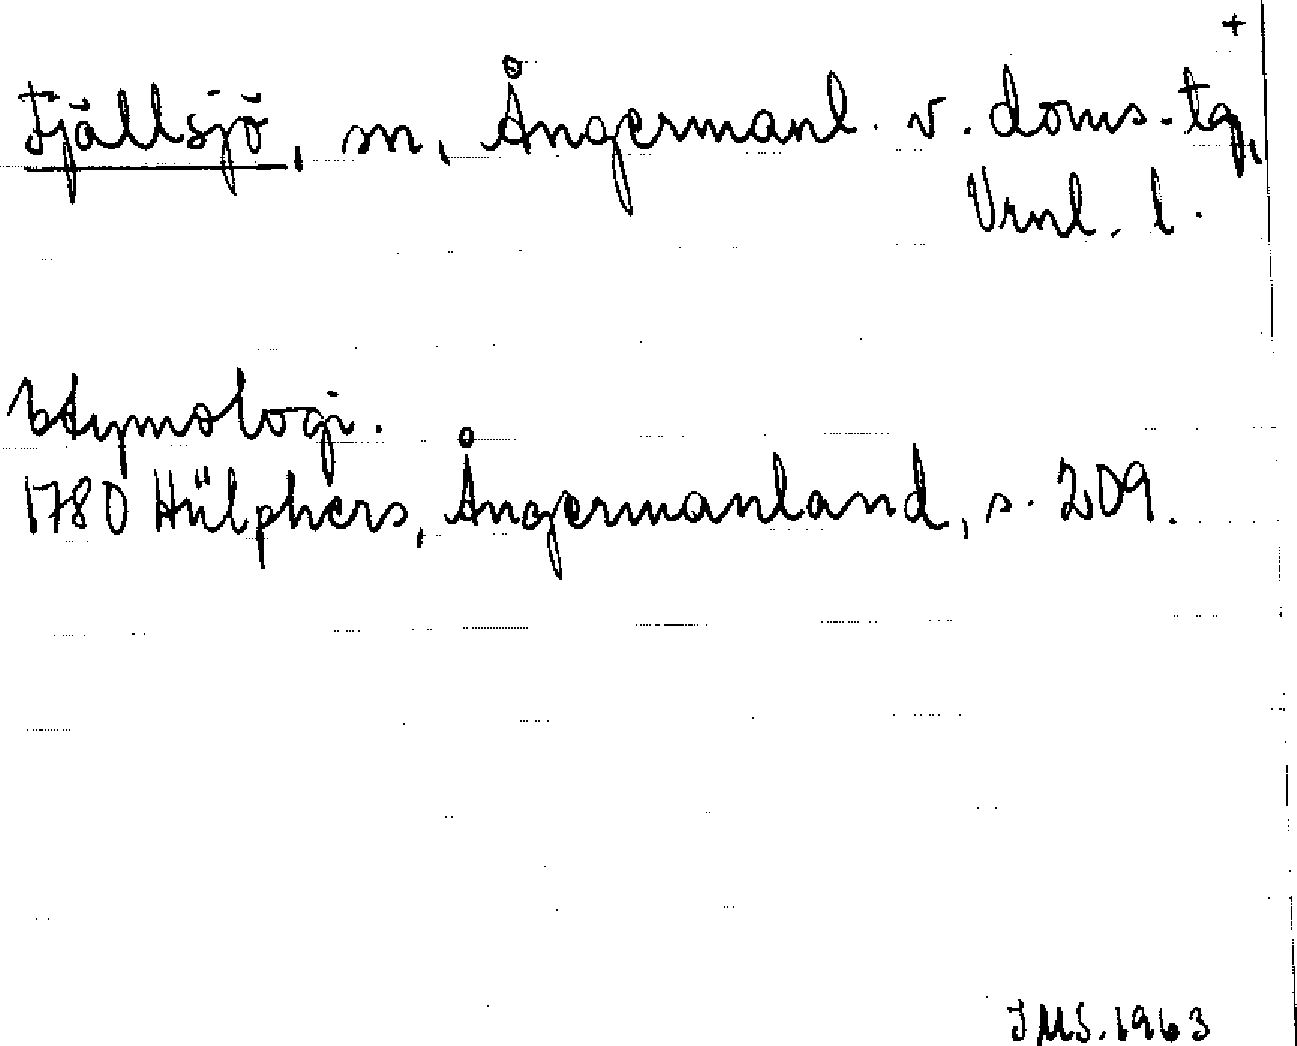 +
Fjällsjö, sn, Ångermanl. v. doms.-tg,
Vrnl. l.
Etymologi.
1780 Hülphers, Ångermanland, s. 209.
JMS. 1963